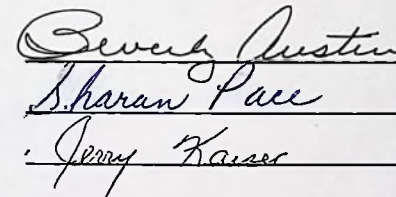 Beverly Austin
Sharan Pace
Jerry Kaiser